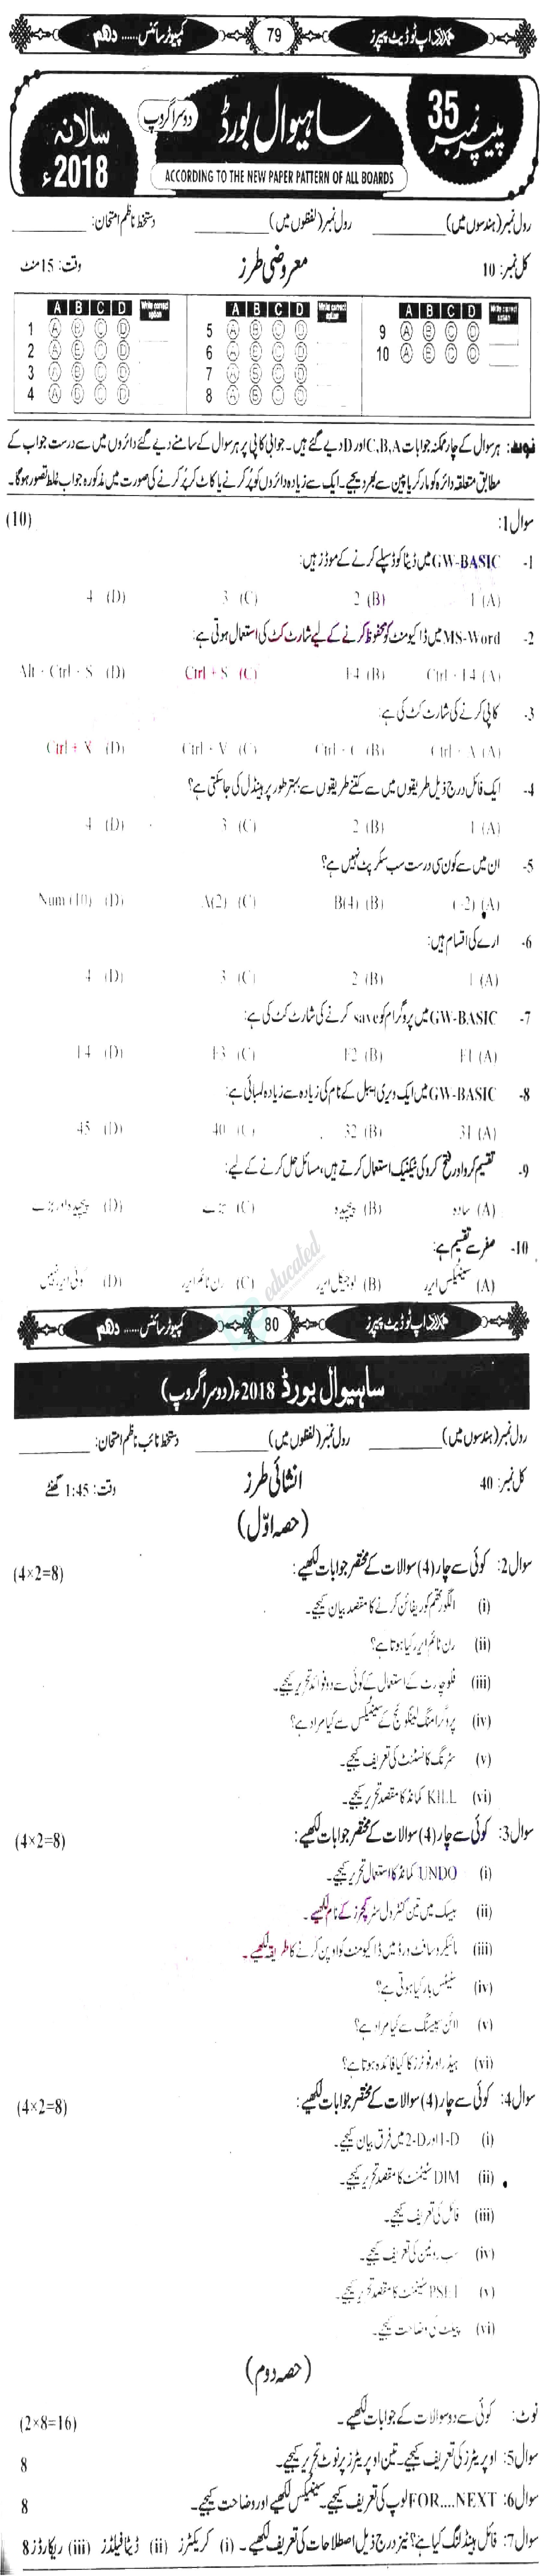 ہمدرد اپ ٹو ڈیٹ پیپرز 79 کمپیوٹر سائنس ...... دہم
پیپر نمبر 35 ساہیوال بورڈ دوسرا گروپ سالانہ 2018ء
ACCORDING TO THE NEW PAPER PATTERN OF ALL BOARDS
رول نمبر (ہندسوں میں) ________ رول نمبر (لفظوں میں) ________ دستخط ناظم امتحان: ________
کل نمبر: 10 معروضی طرز وقت: 15 منٹ
A B C D Write correct option A B C D Write correct option A B C D Write correct option
1 A B C D 5 A B C D 9 A B C D
2 A B C D 6 A B C D 10 A B C D
3 A B C D 7 A B C D
4 A B C D 8 A B C D
نوٹ: ہر سوال کے چار ممکنہ جوابات C,B,A اور D دیے گئے ہیں۔ جوابی کاپی پر ہر سوال کے سامنے دیے گئے دائروں میں سے درست جواب کے
مطابق متعلقہ دائرہ کو مارکر یا پین سے بھر دیجیے۔ ایک سے زیادہ دائروں کو پُر کرنے یا کاٹ کر پُر کرنے کی صورت میں مذکورہ جواب غلط تصور ہوگا۔
سوال 1: (10)
1- GW-BASIC میں ڈیٹا کو ڈسپلے کرنے کے موڈز ہیں:
(A) 1 (B) 2 (C) 3 (D) 4
2- MS-Word میں ڈاکیومنٹ کو محفوظ کرنے کے لیے شارٹ کٹ کی استعمال ہوتی ہے:
(A) Ctrl + F4 (B) F4 (C) Ctrl + S (D) Alt + Ctrl + S
3- کاپی کرنے کی شارٹ کٹ کی ہے:
(A) Ctrl + A (B) Ctrl + C (C) Ctrl + V (D) Ctrl + X
4- ایک فائل درج ذیل طریقوں میں سے کتنے طریقوں سے بہتر طور پر ہینڈل کی جاسکتی ہے؟
(A) 1 (B) 2 (C) 3 (D) 4
5- ان میں سے کون سی درست سب سکرپٹ نہیں ہے؟
(A) (-2) (B) B(4) (C) A(2) (D) Num (10)
6- ارے کی اقسام ہیں:
(A) 1 (B) 2 (C) 3 (D) 4
7- GW-BASIC میں پروگرام کو save کرنے کی شارٹ کٹ کی ہے:
(A) F1 (B) F2 (C) F3 (D) F4
8- GW-BASIC میں ایک ویری ایبل کے نام کی زیادہ سے زیادہ لمبائی ہے:
(A) 31 (B) 32 (C) 40 (D) 45
9- تقسیم کرو اور فتح کرو کی ٹیکنیک استعمال کرتے ہیں، مسائل حل کرنے کے لیے:
(A) سادہ (B) پیچیدہ (C) بڑے (D) پیچیدہ اور بڑے
10- صفر سے تقسیم ہے:
(A) سینٹیکس ایرر (B) لوجیکل ایرر (C) رن ٹائم ایرر (D) کوئی ایرر نہیں
educated
ہمدرد اپ ٹو ڈیٹ پیپرز 80 کمپیوٹر سائنس ...... دہم
ساہیوال بورڈ 2018ء (دوسرا گروپ)
رول نمبر (ہندسوں میں) ________ رول نمبر (لفظوں میں) ________ دستخط نائب ناظم امتحان: ________
کل نمبر: 40 انشائی طرز وقت: 1:45 گھنٹے
(حصہ اوّل)
سوال 2: کوئی سے چار (4) سوالات کے مختصر جوابات لکھیے: (4×2=8)
(i) الگورتھم کو ریفائن کرنے کا مقصد بیان کیجیے۔
(ii) رن ٹائم ایرر کیا ہوتا ہے؟
(iii) فلو چارٹ کے استعمال کے کوئی سے دو فوائد تحریر کیجیے۔
(iv) پروگرامنگ لینگوئج کے سینٹیکس سے کیا مراد ہے؟
(v) سٹرنگ کانسٹنٹ کی تعریف کیجیے۔
(vi) KILL کمانڈ کا مقصد تحریر کیجیے۔
سوال 3: کوئی سے چار (4) سوالات کے مختصر جوابات لکھیے: (4×2=8)
(i) UNDO کمانڈ کا استعمال تحریر کیجیے۔
(ii) بیسک میں تین کنٹرول سٹرکچرز کے نام لکھیے۔
(iii) مائیکروسافٹ ورڈ میں ڈاکیومنٹ کو اوپن کرنے کا طریقہ لکھیے۔
(iv) سٹیٹس بار کیا ہوتی ہے؟
(v) لائن سپیسنگ سے کیا مراد ہے؟
(vi) ہیڈر اور فوٹرز کا کیا فائدہ ہوتا ہے؟
سوال 4: کوئی سے چار (4) سوالات کے مختصر جوابات لکھیے: (4×2=8)
(i) 1-D اور 2-D میں فرق بیان کیجیے۔
(ii) DIM سٹیٹمنٹ کا مقصد تحریر کیجیے۔
(iii) فائل کی تعریف کیجیے۔
(iv) سب روٹین کی تعریف کیجیے۔
(v) PSET سٹیٹمنٹ کا مقصد تحریر کیجیے۔
(vi) پیلٹ کی وضاحت کیجیے۔
(حصہ دوم)
نوٹ: کوئی سے دو سوالات کے جوابات لکھیے۔ (2×8=16)
سوال 5: اوپریٹرز کی تعریف کیجیے۔ تین اوپریٹرز پر نوٹ تحریر کیجیے۔ 8
سوال 6: FOR....NEXT لوپ کی تعریف کیجیے۔ سینٹیکس لکھیے اور وضاحت کیجیے۔ 8
سوال 7: فائل ہینڈلنگ کیا ہے؟ نیز درج ذیل اصطلاحات کی تعریف لکھیے۔ (i) کریکٹرز (ii) ڈیٹا فیلڈز (iii) ریکارڈز 8